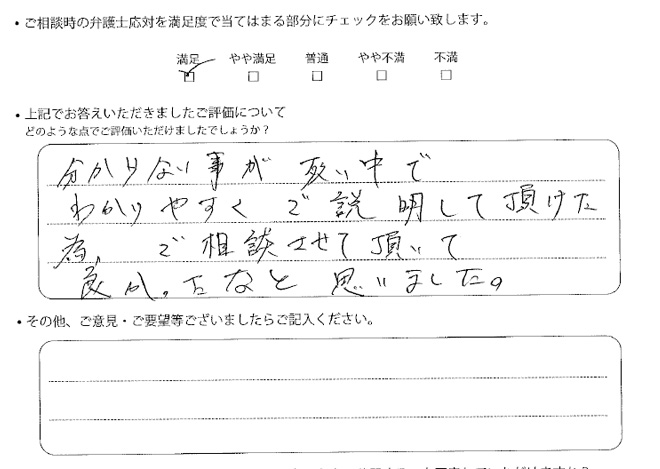 ・ご相談時の弁護士応対を満足度で当てはまる部分にチェックをお願い致します。
満足 やや満足 普通 やや不満 不満
・上記でお答えいただきましたご評価について
どのような点でご評価いただけましたでしょうか？
分かりない事が 多い中で
わかりやすく ご説明して頂けた
為、ご相談させて頂いて
良かったなと思いました。
・その他、ご意見・ご要望等ございましたらご記入ください。